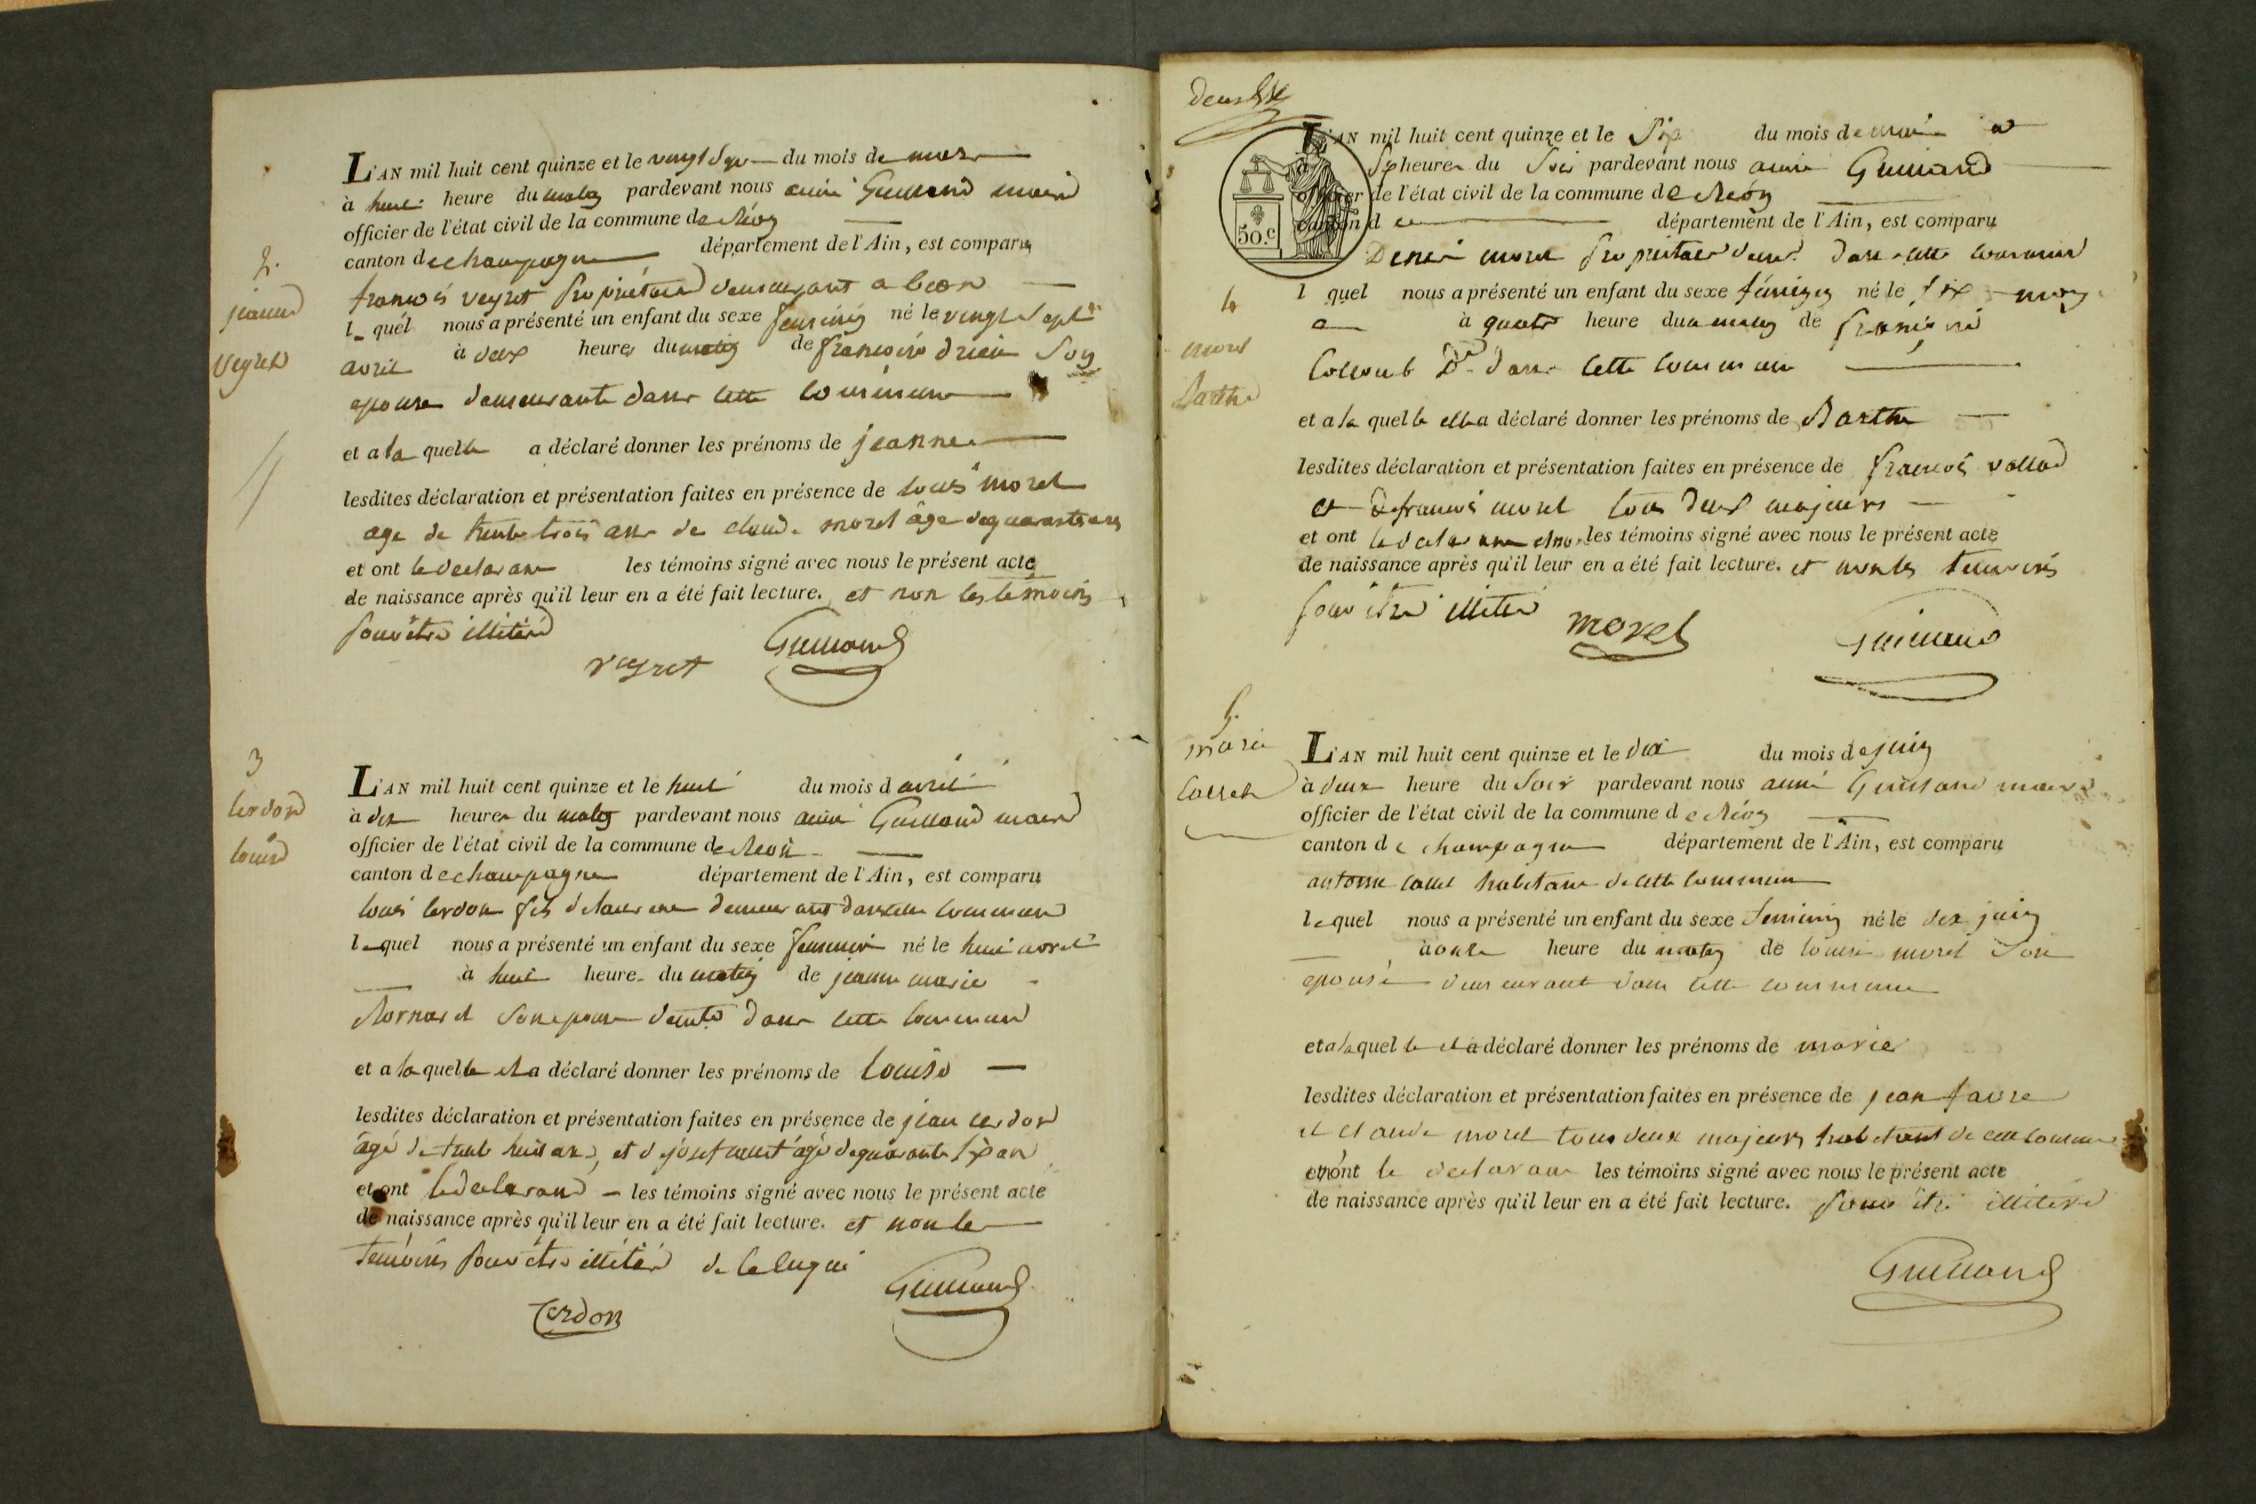 2.
jeanne
veyret
L'AN mil huit cent quinze et le vingt sept du mois de mars
à huit heure du matin pardevant nous aimé Guilland maire
officier de l'état civil de la commune de Béon
canton de champagne département de l'Ain, est comparu
françois veyret propriétaire demeurant a beon
l quel nous a présenté un enfant du sexe feminin né le vingt sept
avril à deux heures du matin de françoise Son
epouse demeurante dans cette commune
et a la quelle a déclaré donner les prénoms de jeanne
lesdites déclaration et présentation faites en présence de louis morel
age de trente trois ans de claude morel âge de quarante ans
et ont le declarant les témoins signé avec nous le présent acte
de naissance après qu'il leur en a été fait lecture. et non les témoins
pour être illitéré
veyret Guilland
3
cerdon
louise
L'AN mil huit cent quinze et le huit du mois d avril
à dix heures du matin pardevant nous aimé Guilland maire
officier de l'état civil de la commune de Béon
canton de champagne département de l'Ain, est comparu
louis cerdon fils de demeurant dans cette commune
le quel nous a présenté un enfant du sexe feminin né le huit avril
à huit heure du matin de jeanne marie
Bornard Son epouse demte dans cette commune
et a la quelle il a déclaré donner les prénoms de louise
lesdites déclaration et présentation faites en présence de jean cerdon
âgé de trente huit ans, et de josef âgé de quarante six ans
et ont le declarant les témoins signé avec nous le présent acte
de naissance après qu'il leur en a été fait lecture. et non les
temoins pour être illitéré de ce
Cerdon Guilland
deuxe
50.c
4
morel
Barthe
L'AN mil huit cent quinze et le Six du mois de mai
à Six heures du Soir pardevant nous aimé Guilland
officier de l'état civil de la commune de Béon
canton de département de l'Ain, est comparu
Denis morel propriétaire demt dans cette commune
l quel nous a présenté un enfant du sexe féminin né le six may
à quatre heure du matin de françoise
Colloub De dans cette commune
et a la quelle il a déclaré donner les prénoms de Barthe
lesdites déclaration et présentation faites en présence de françois vallod
et de françois morel tous deux majeurs
et ont le declarant et non les témoins signé avec nous le présent acte
de naissance après qu'il leur en a été fait lecture. et non les temoins
pour être illitéré
morel Guilland
5.
marie
collet
L'AN mil huit cent quinze et le dix du mois de juin
à deux heure du Soir pardevant nous aimé Guilland maire
officier de l'état civil de la commune de Béon
canton de champagne département de l'Ain, est comparu
antoine collet habitant de cette commune
le quel nous a présenté un enfant du sexe feminin né le dix juin
à onze heure du matin de louise morel Son
epouse demeurant dans cette commune
et a la quelle il a déclaré donner les prénoms de marie
lesdites déclaration et présentation faites en présence de jean favre
et claude morel tous deux majeurs habitant de cette commune
et ont le declarant les témoins signé avec nous le présent acte
de naissance après qu'il leur en a été fait lecture. pour être illitéré
Guilland